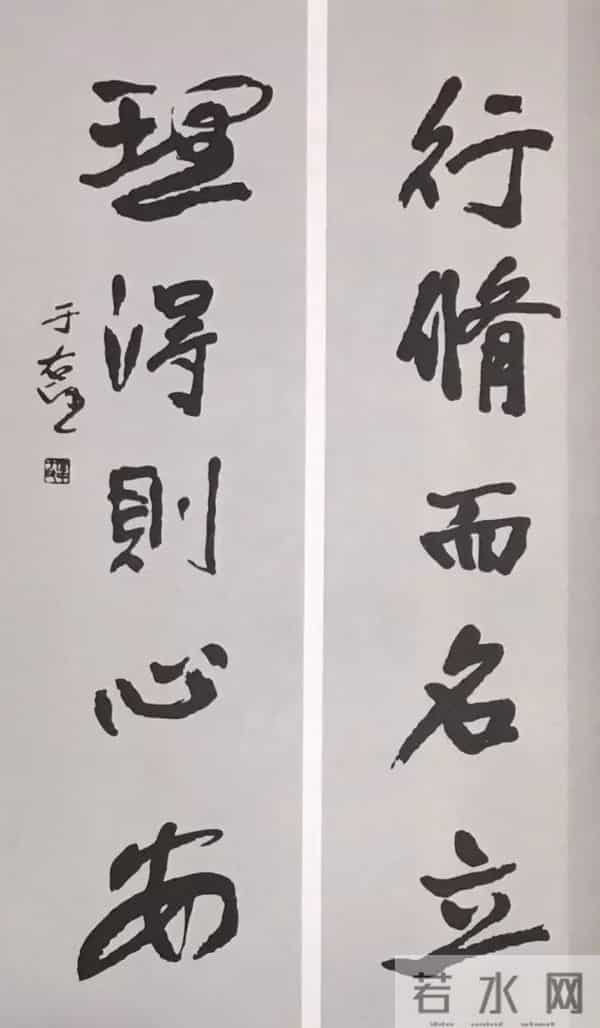 行脩而名立
理得則心安
于右任
若水网